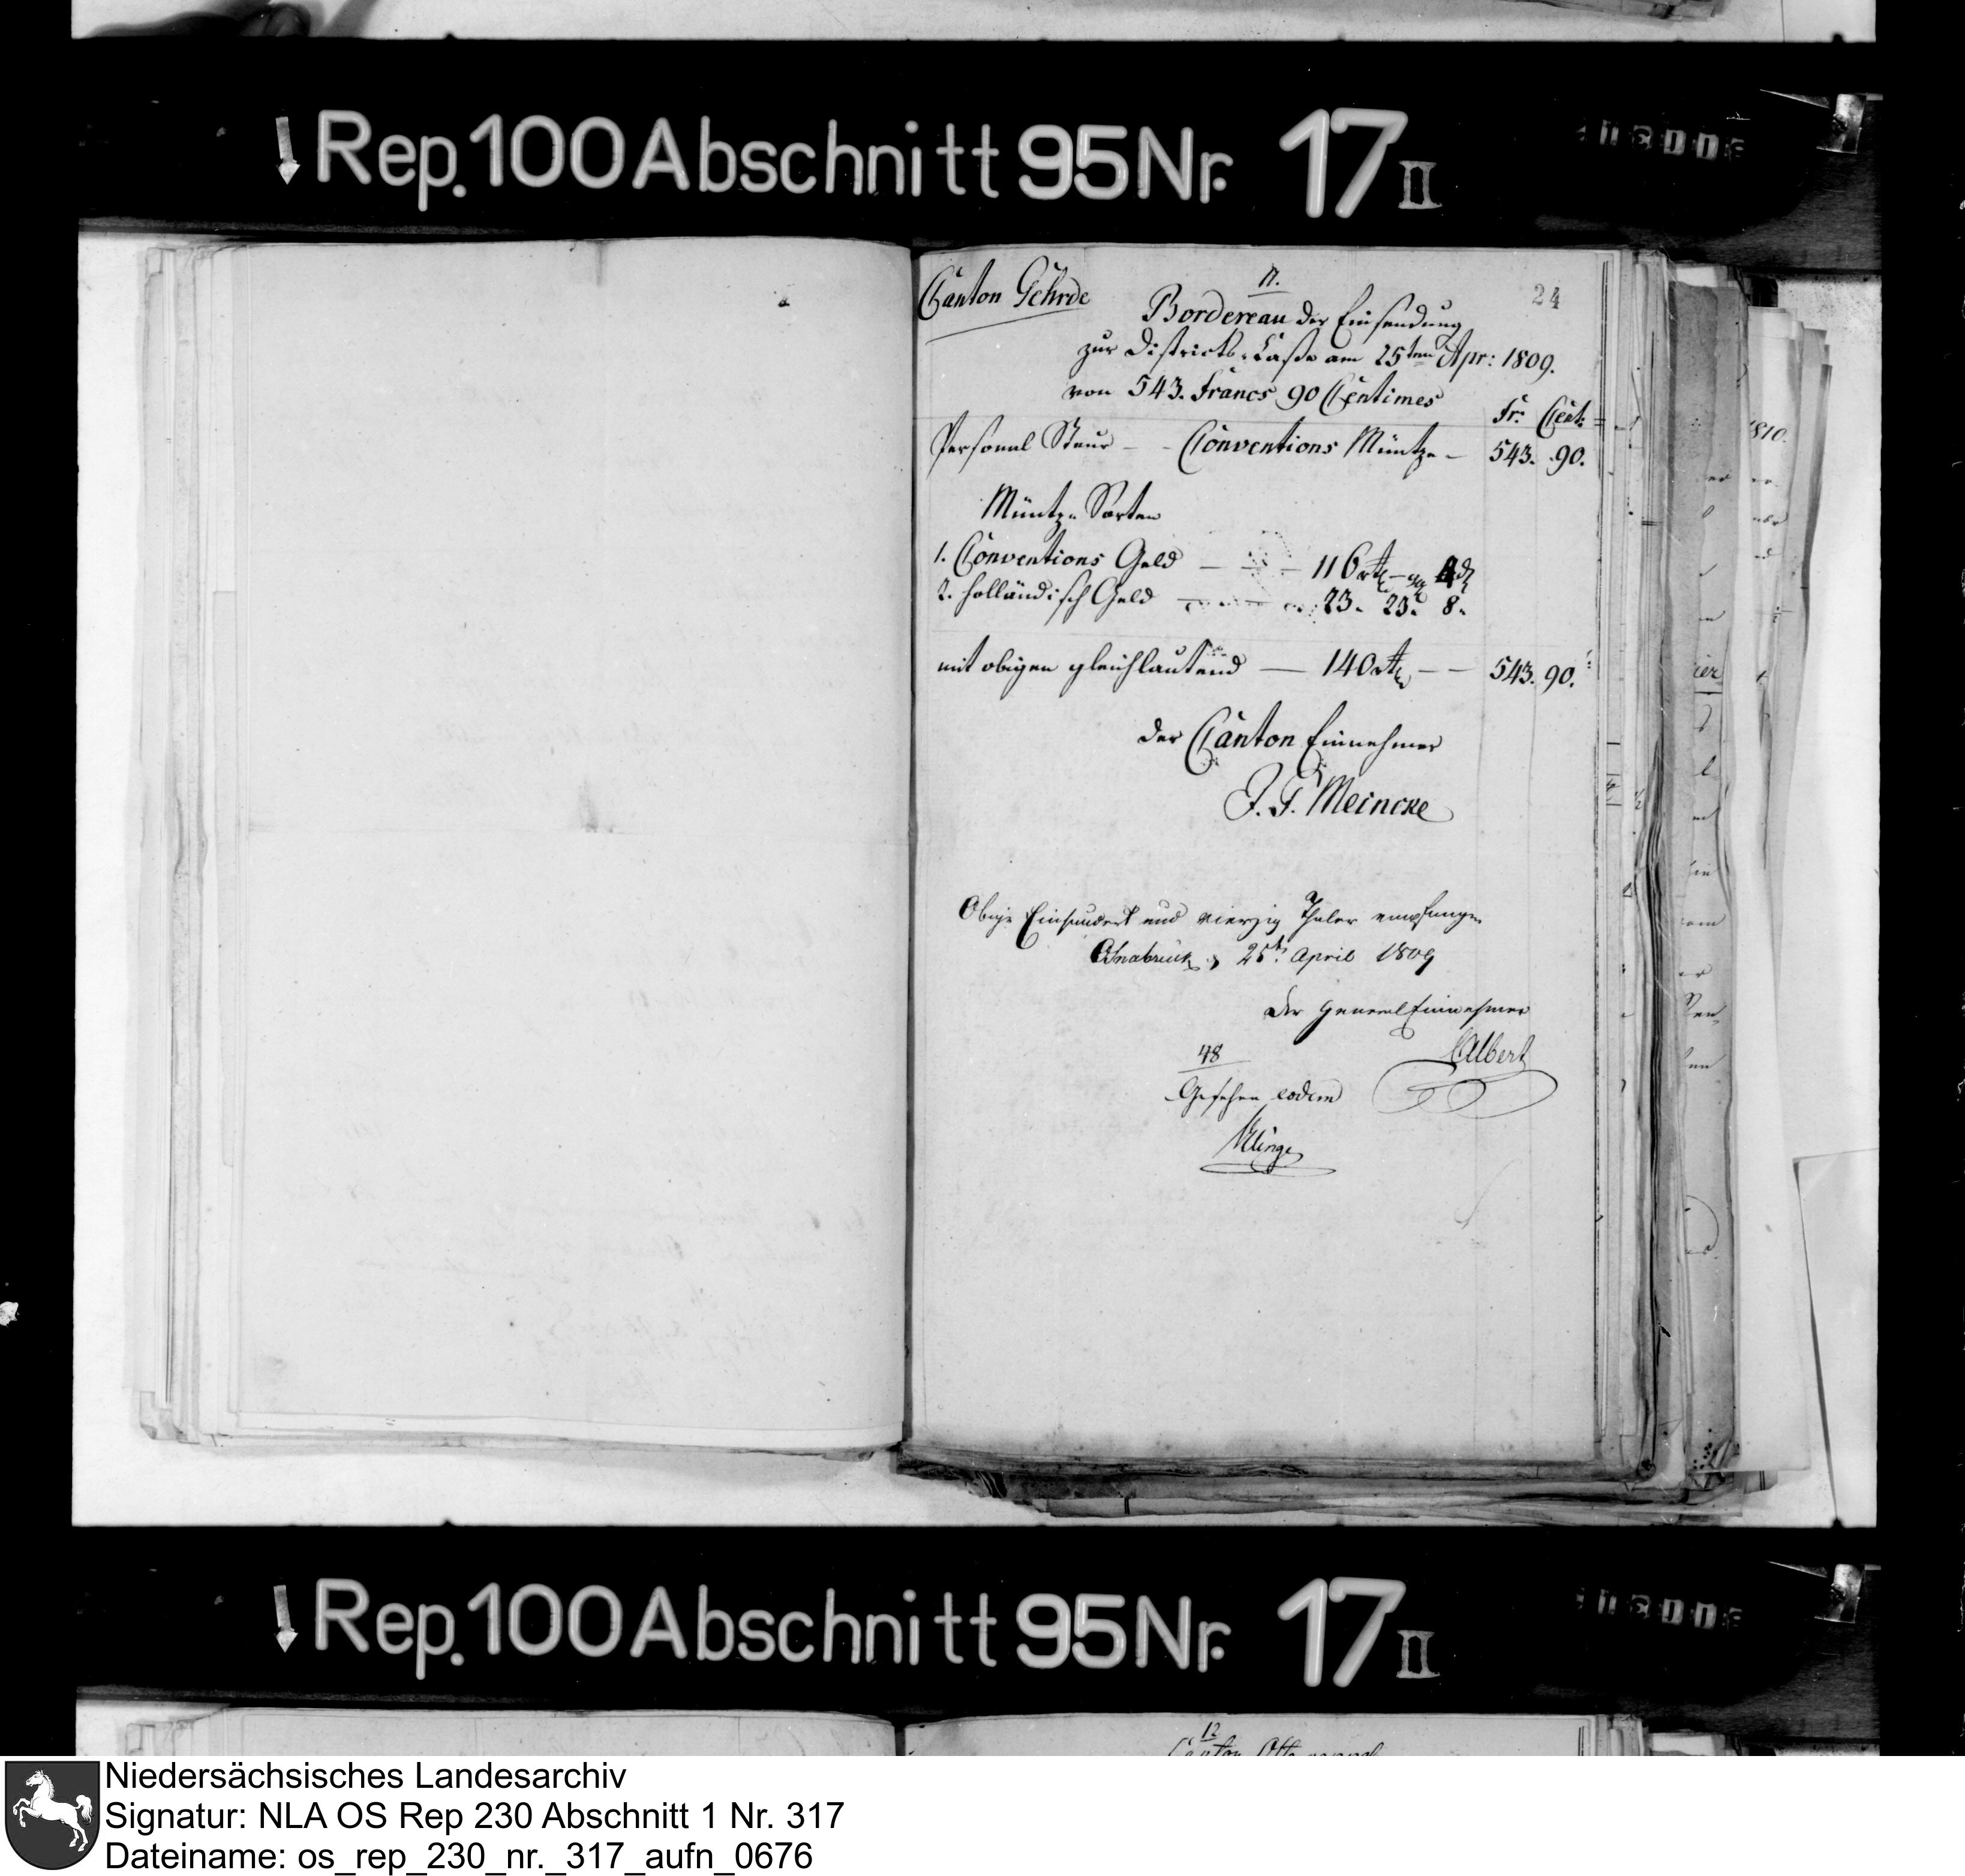 Rep. 100 Abschnitt 95 Nr. 17 II
Canton Gehrde
11.
24
Bordereau der Einsendung
zur Districts-Casse am 25ten Apr: 1809.
von 543. Francs 90 Centimes
Fr: Cent:
Personal Steur – – Conventions Müntze – 543. 90.
Müntz Sorten
1. Conventions Geld – – – 116 rt – gg 4 d
2. holländisch Geld – – 23. 23. 8.
mit obigen gleichlautend — 140 rt – – 543. 90.
der Canton Einnehmer
J. F. Meincke
Obige Einhundert und vierzig Thaler empfangen
Osnabrück, 25t. April 1809
Der General Einnehmer
Albert
48
Gesehen eodem
Klinge
1810.
Rep. 100 Abschnitt 95 Nr. 17 II
12
Canton
Niedersächsisches Landesarchiv
Signatur: NLA OS Rep 230 Abschnitt 1 Nr. 317
Dateiname: os_rep_230_nr._317_aufn_0676